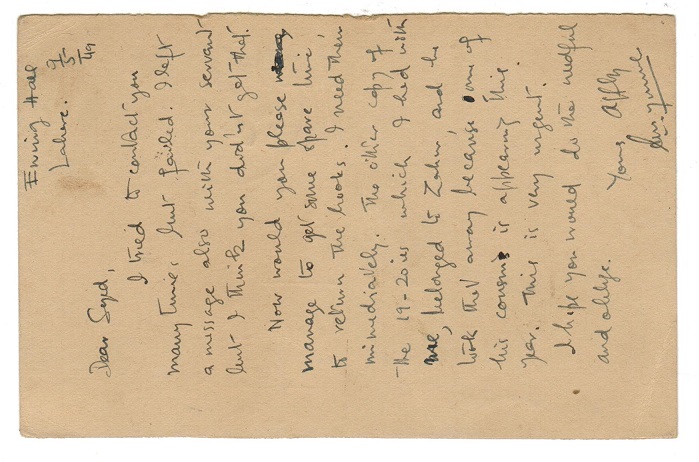 Ewing Hall
Lahore.
9/5/49
Dear Syed,
I tried to contact you
many times but failed. I left
a message also with your servant
but I think you didn't get that.
Now would you please
manage to get some spare time,
to return the books. I need them
immediately. The other copy of
the 19-20 is which I had with
me, belonged to Zahur, and he
took that away because one of
his cousins is appearing this
year. This is very urgent.
I hope you would do the needful
and oblige.
Yours Affly